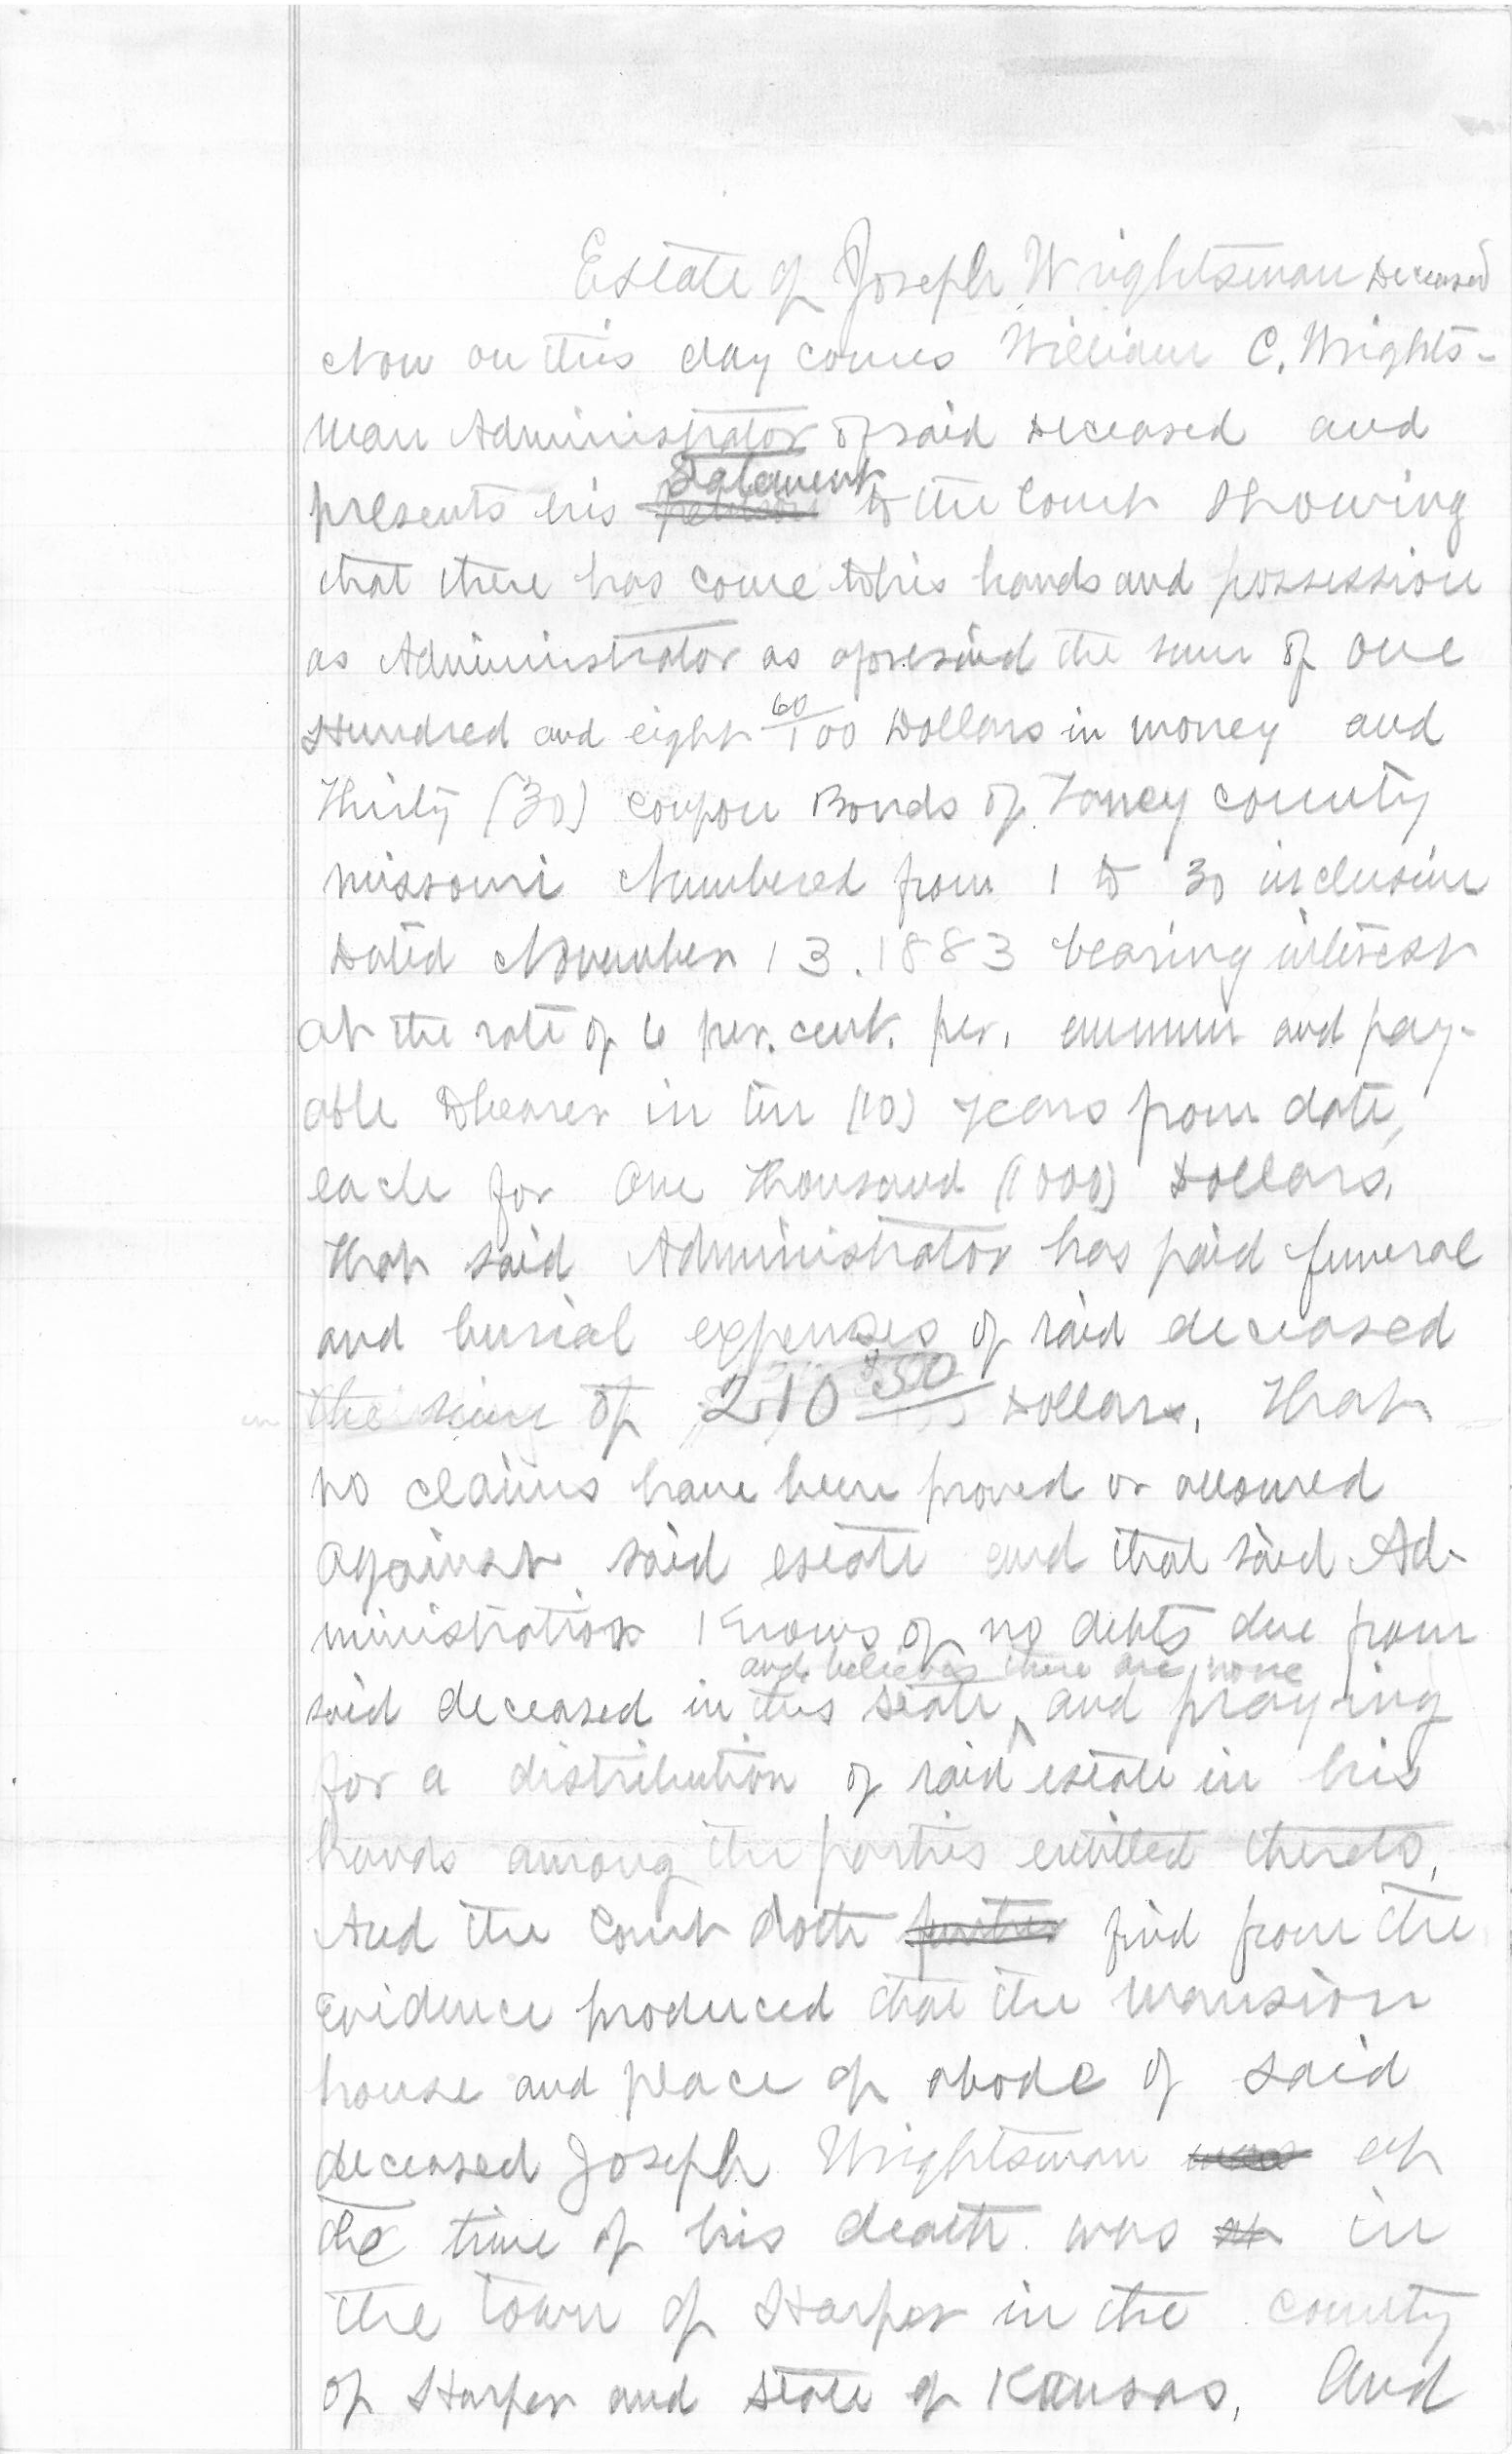 Estate of Joseph Wrightsman Deceased
Now on this day comes William C. Wrights-
man Administrator of said Deceased and
Statement
presents his petition to the Court Showing
that there has come to his hands and possession
as Administrator as aforesaid the sum of One
Hundred and eight 60/100 Dollars in money and
Thirty (30) coupon Bonds of Taney County
Missouri Numbered from 1 to 30 inclusive
Dated November 13. 1883 bearing interest
at the rate of 6 per. cent. per. annum and pay-
able to bearer in ten (10) years from date,
each for One Thousand (1000) Dollars.
That said Administrator has paid funeral
and burial expenses of said deceased
the sum of 210 50 Dollars. That
no claims have been proved or allowed
against said estate and that said Ad-
ministrator Knows of no debts due from
and believes there are none
said deceased in this State ^ and praying
for a distribution of said estate in his
hands among the parties entitled thereto.
And the Court doth further find from the
Evidence produced that the mansion
house and place of abode of said
deceased Joseph Wrightsman was at
the time of his death was at in
the town of Harper in the County
of Harper and State of Kansas. And